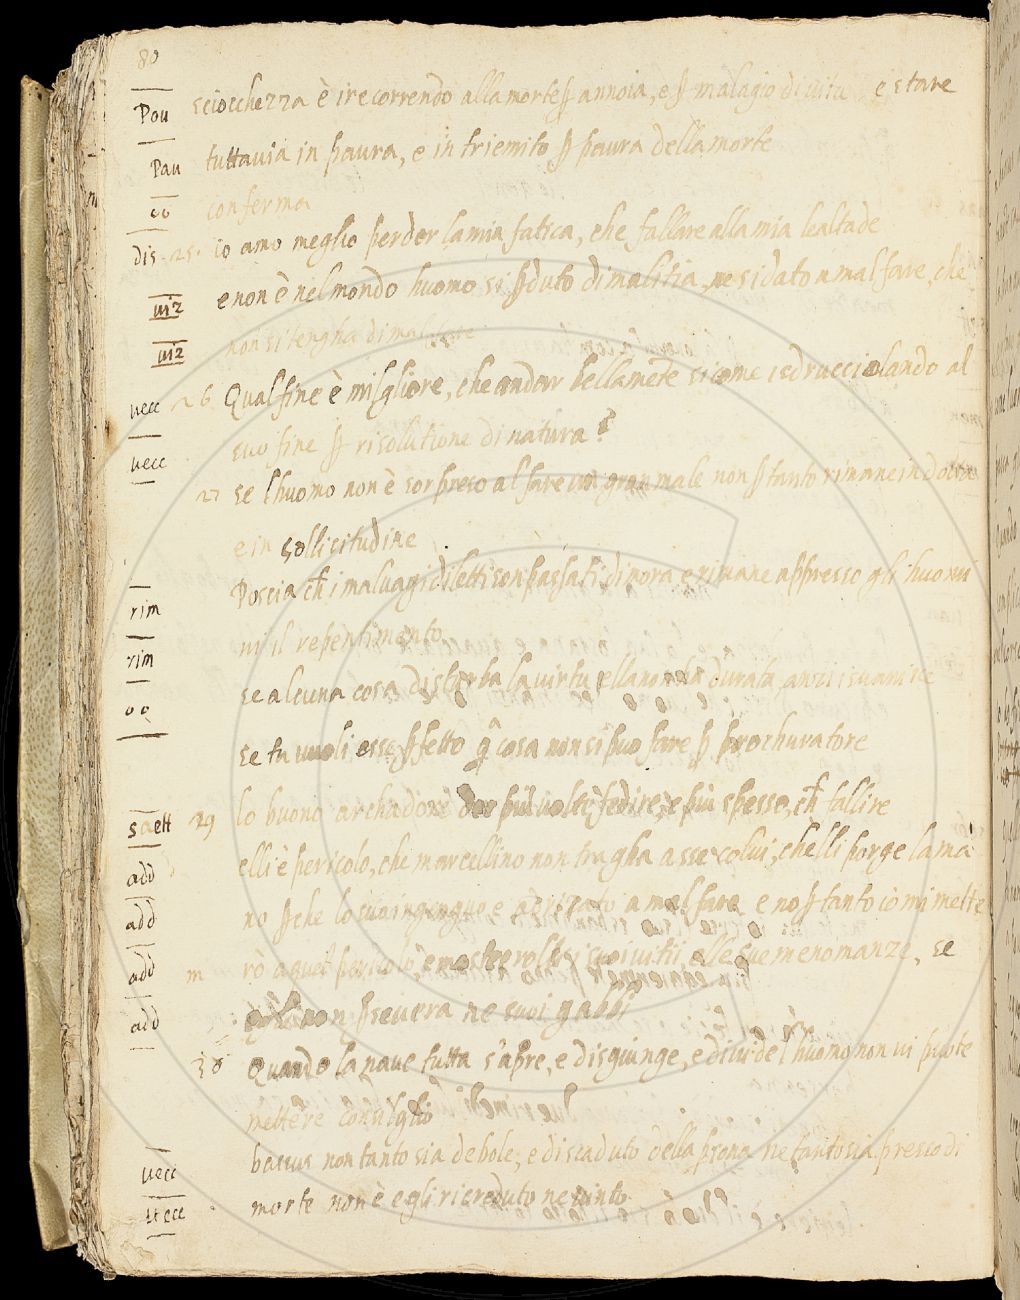 80
Pou sciocchezza è ire correndo alla morte ꝑ annoia, e ꝑ malagio di vita e stare
Pau tuttauia in paura, e in triemito ꝑ paura della morte
oo conferma
dis 25. io amo meglio perder la mia fatica, che fallare alla mia lealtade
uiz e non è nel mondo huomo si ꝑduto di malitia, ne si dato a mal fare, che
uiz non si tengha di mal fare
uecc 26 Qual fine è miglgliore, che andar bellamẽte sicome isdrucciolando al
uecc suo fine ꝑ risolutione di natura?
27 se lhuomo non è sorpreso al fare un gran male non ꝑ tanto rimane in dotta
e in sollicitudine
rim Poscia ch̃ i maluagi diletti son passati dinora e rimane appresso gli huomi
rim ni il repentimento
oo se alcuna cosa disturba la uirtu, ella non ha durata, anzi isuanisce
se tu uuoli esse ꝑfetto q̃ cosa non si puo fare ꝑ prochuratore
saett 29 lo buono archadore dee più uolte fedire, e più spesso, ch̃ fallire
add elli è pericolo, che marcellino non tragha a sse colui, chelli porge la ma
add no ꝑ che lo suo ingengno e adrizato a mal fare e no ꝑ tanto io mi mette
add m rò a quel pericolo, e mosterrolli i suoi uitii, elle sue menomanze, se
add non ꝑseuera ne suoi gabbi
30 Quando la naue tutta s'apre, e disgiunge, e diuide l huomo non ui puote
mettere consilglio
uecc bassus non tanto sia debole, e discaduto della ꝑsona ne tanto sia presso di
uecc morte non è egli ricreduto ne uinto